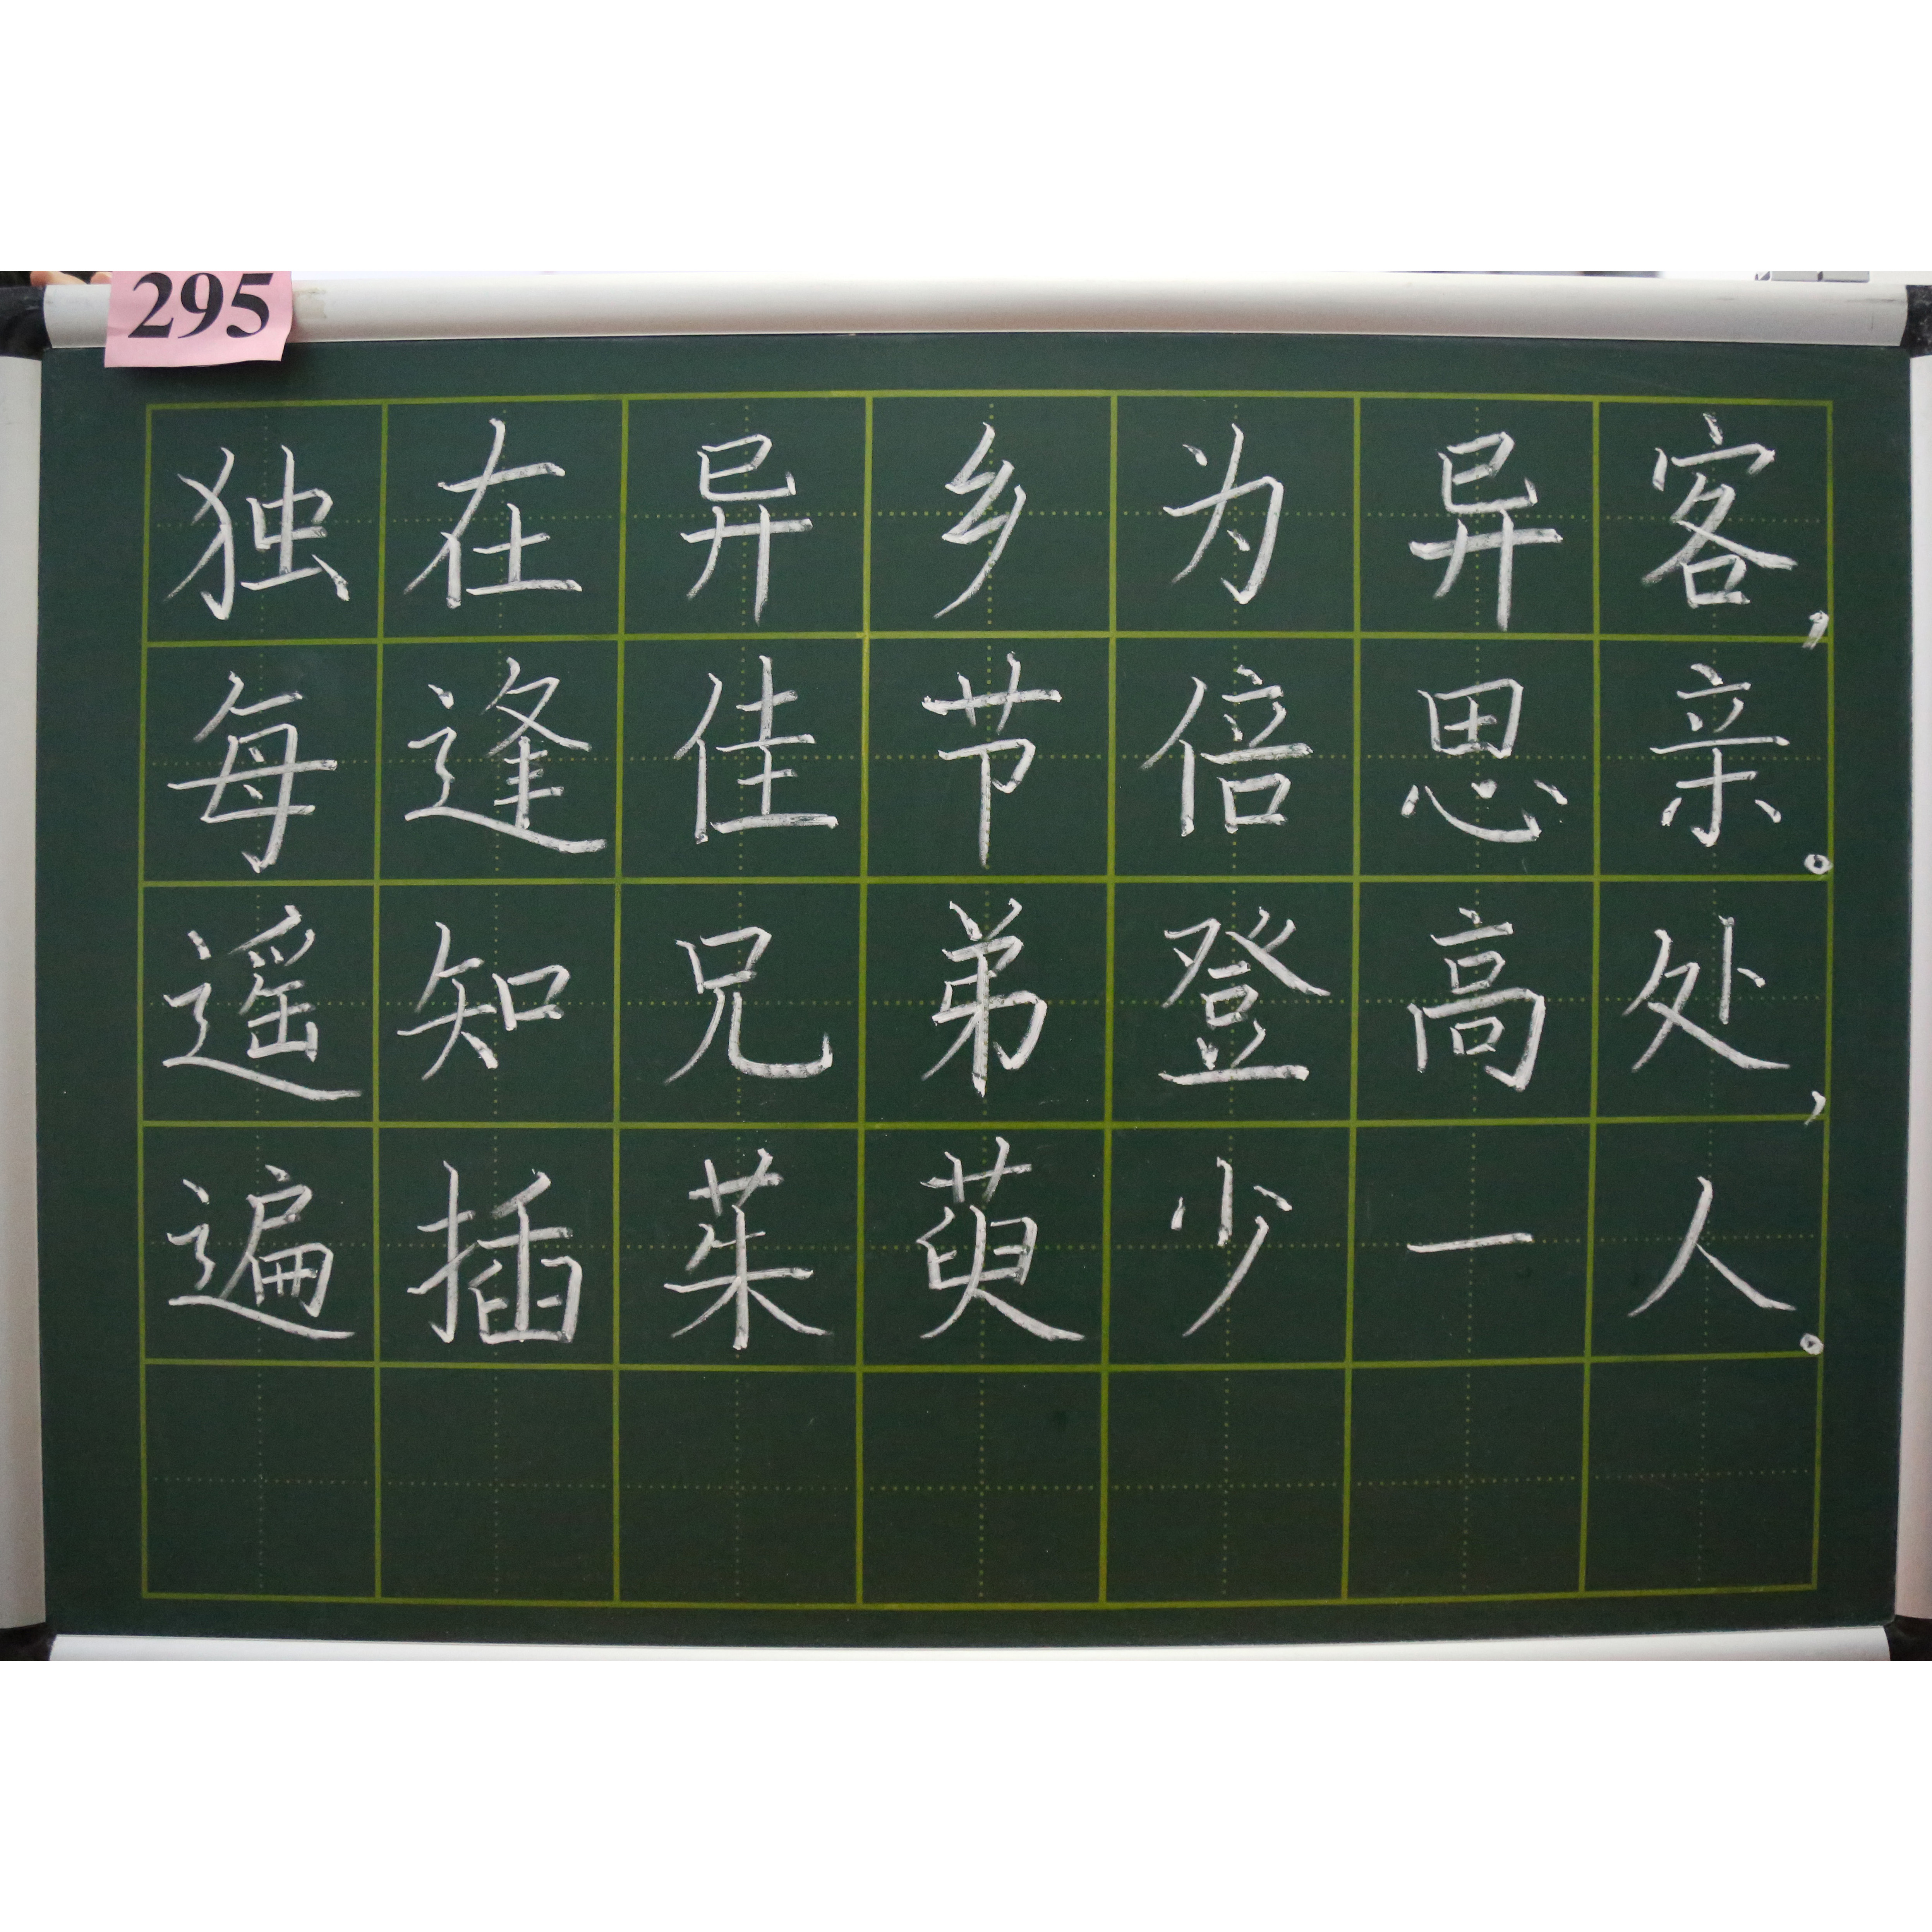 295
独在异乡为异客，
每逢佳节倍思亲。
遥知兄弟登高处，
遍插茱萸少一人。